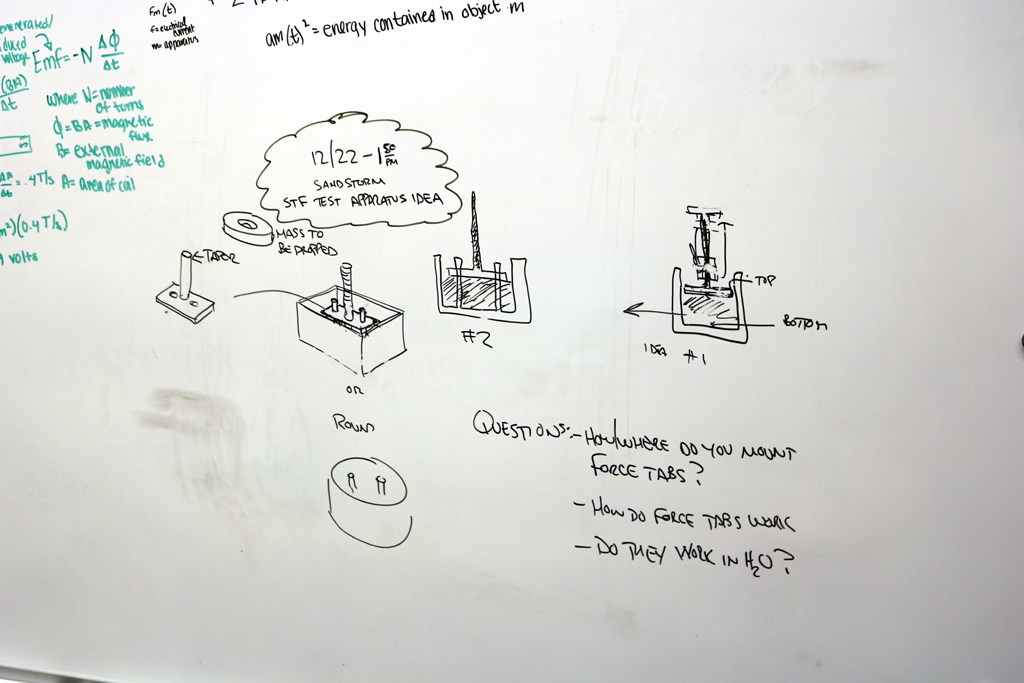 Fm(t)
f=electrical
current
m= apparatus
am(t)² = energy contained in object m
generated/
induced
voltage
Emf = -N ΔΦ/Δt
(BA)
Δt
where N=number
of turns
Φ=BA=magnetic
flux
B= external
magnetic field
A= area of coil
ΔA/Δt = .4T/s
m²)(0.4 T/s)
volts
12/22 - 1 50 PM
SANDSTORM
STF TEST APPARATUS IDEA
MASS TO
BE DROPPED
TAPOR
#2
OR
ROUND
TOP
BOTTOM
IDEA #1
QUESTIONS: - HOW/WHERE DO YOU MOUNT
FORCE TABS?
- HOW DO FORCE TABS WORK
- DO THEY WORK IN H₂O?